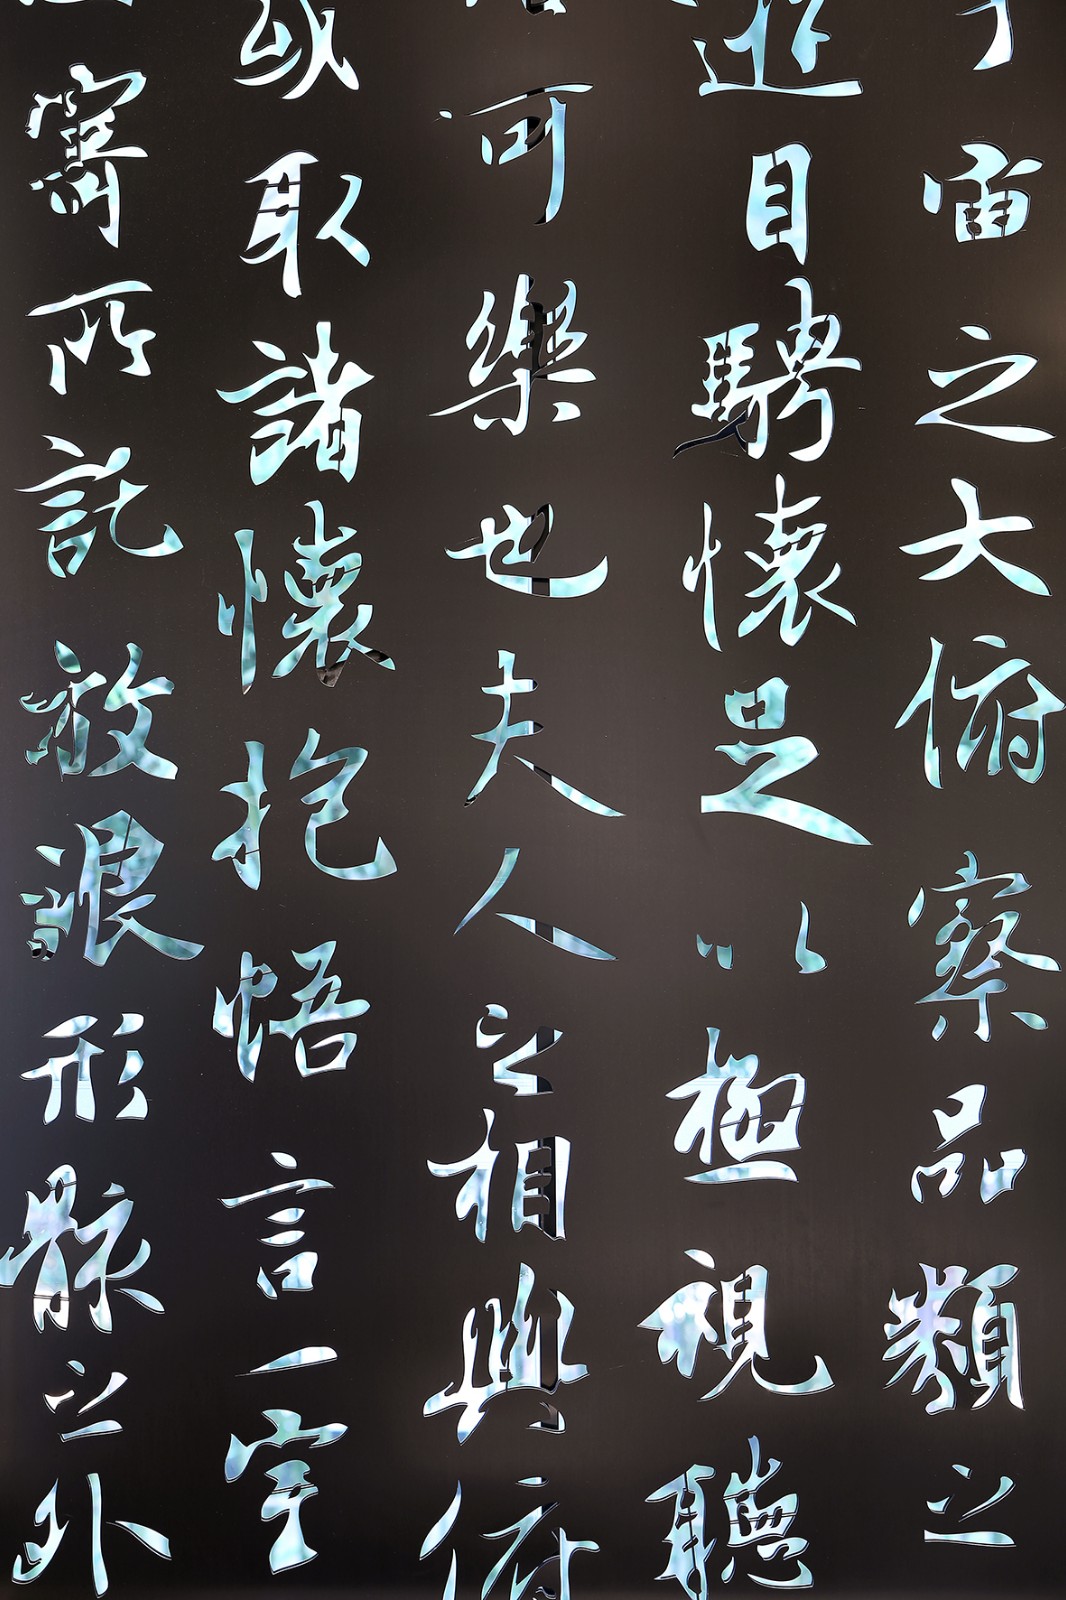 宇宙之大俯察品類之
遊目騁懷足以極視聽
可樂也夫人之相與俯
或取諸懷抱悟言一室
寄所託放浪形骸之外